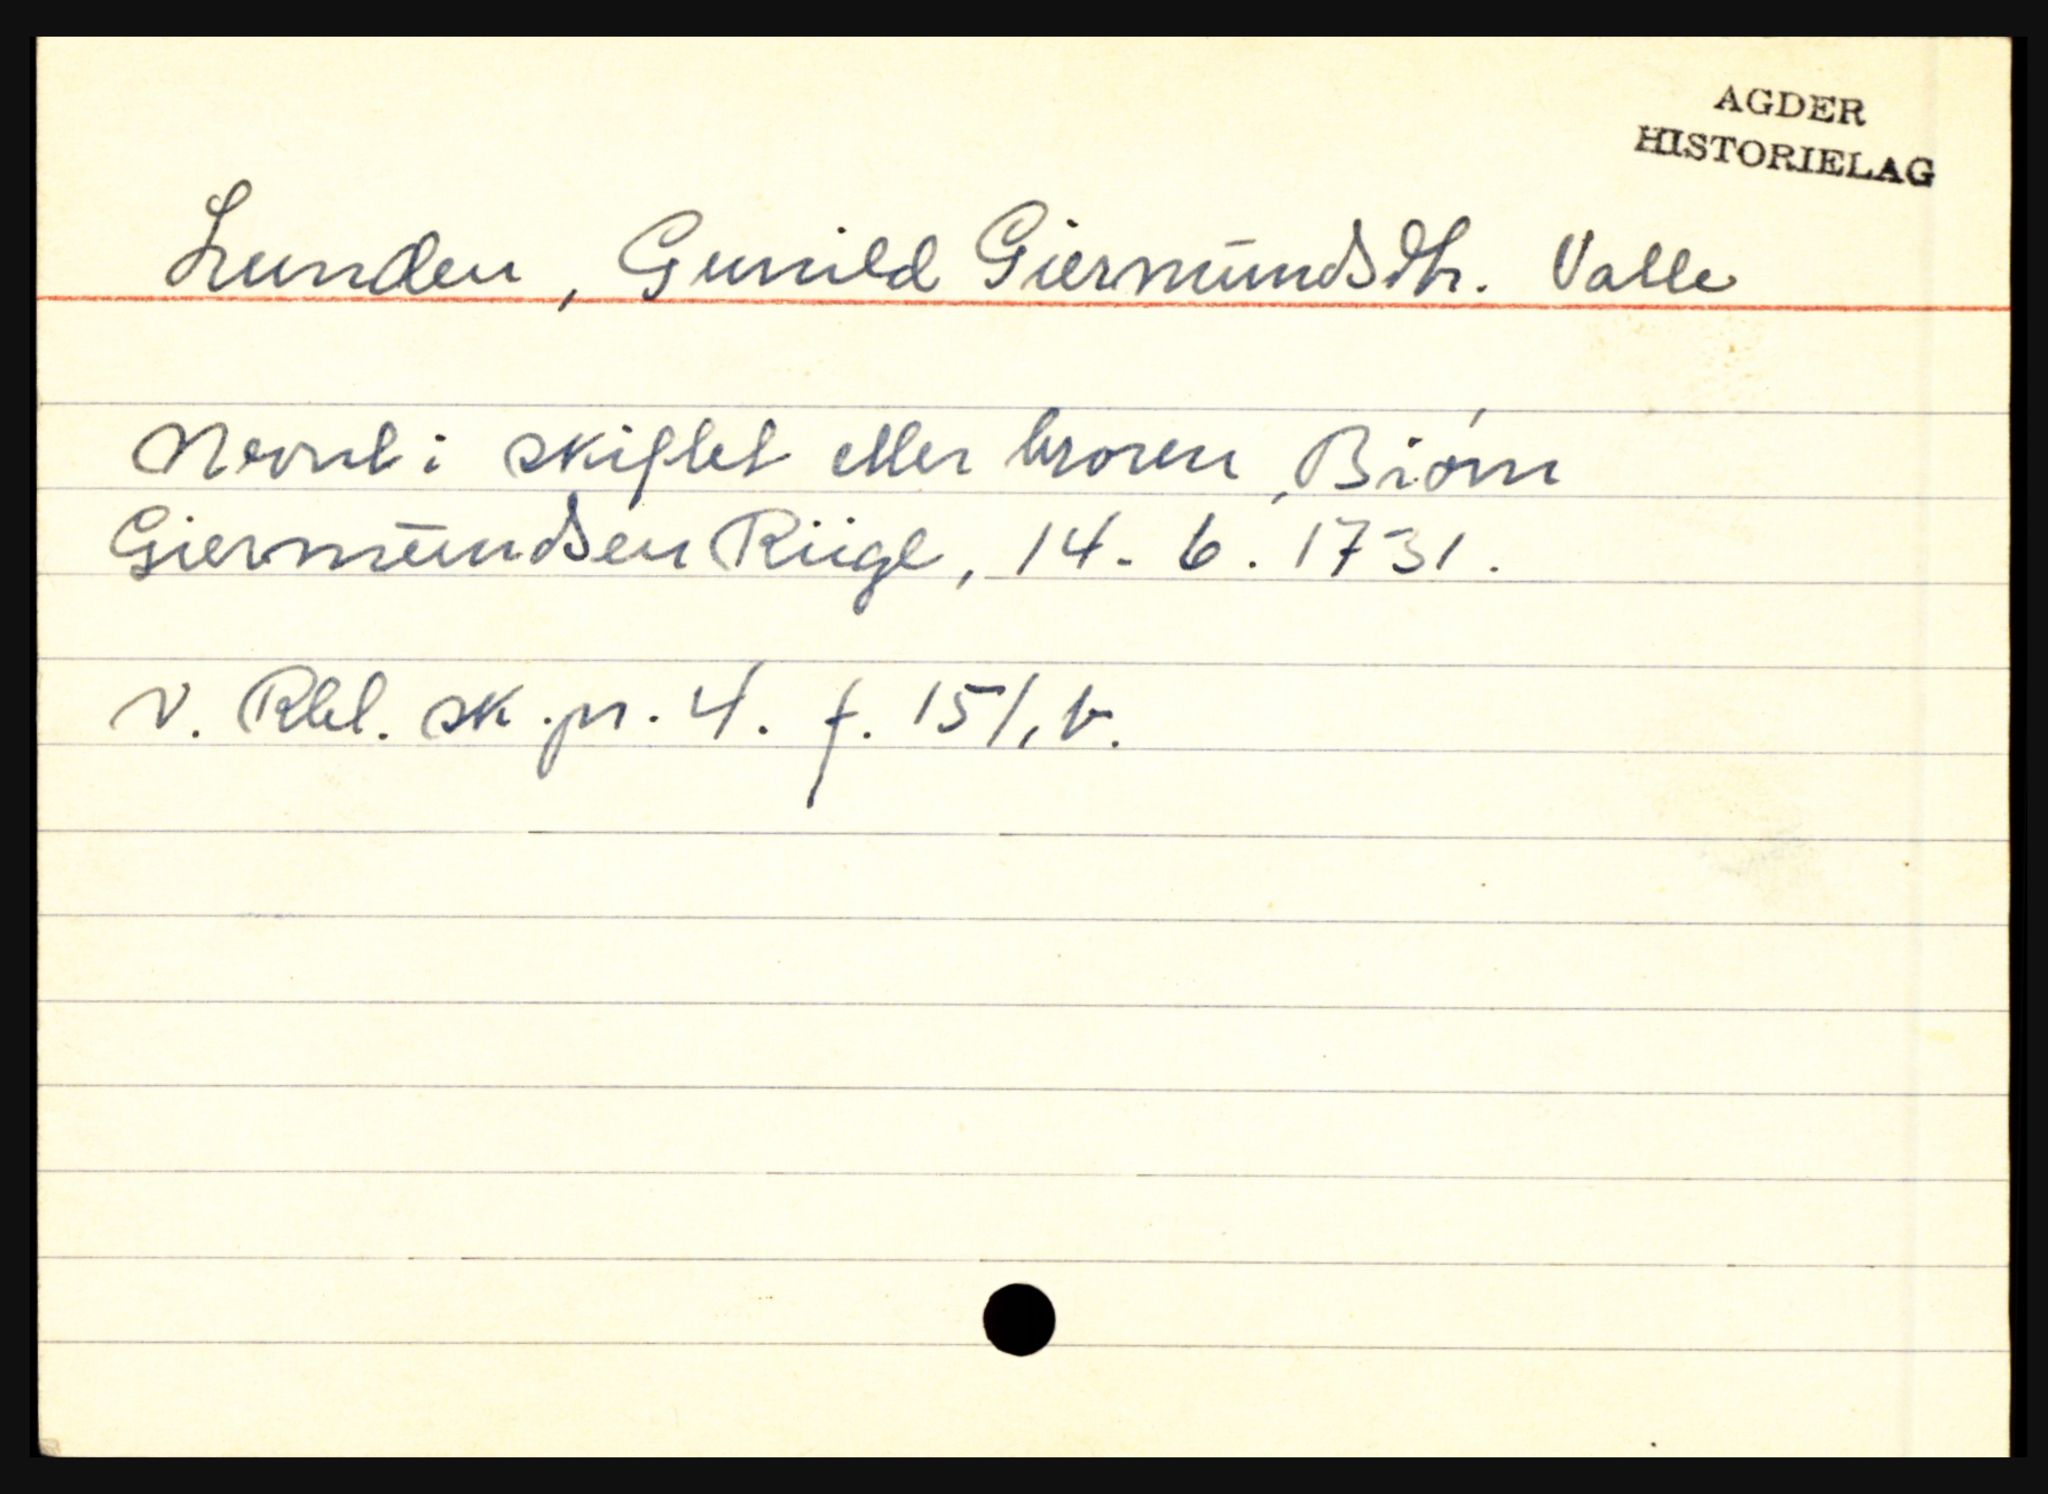 AGDER
HISTORIELAG
Lunden, Gunild Giermundsdtr. Valle
Nevnt i skiftet etter broren, Biørn
Giermundsen Riige, 14. 6. 1731.
V. Rbl. sk. pr. 4. f. 151, b.